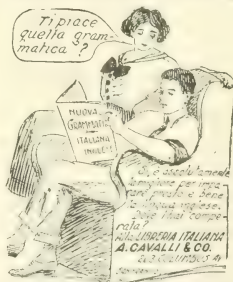 Ti piace
questa gram-
matica?
NUOVA
GRAMMATICA
ITALIANA
INGLESE
Si, è assolutamente
la migliore per impa-
rare presto e bene
la lingua inglese.
Dove l'hai compe-
rata?
Alla LIBRERIA ITALIANA
A. CAVALLI & CO.
COLUMBUS